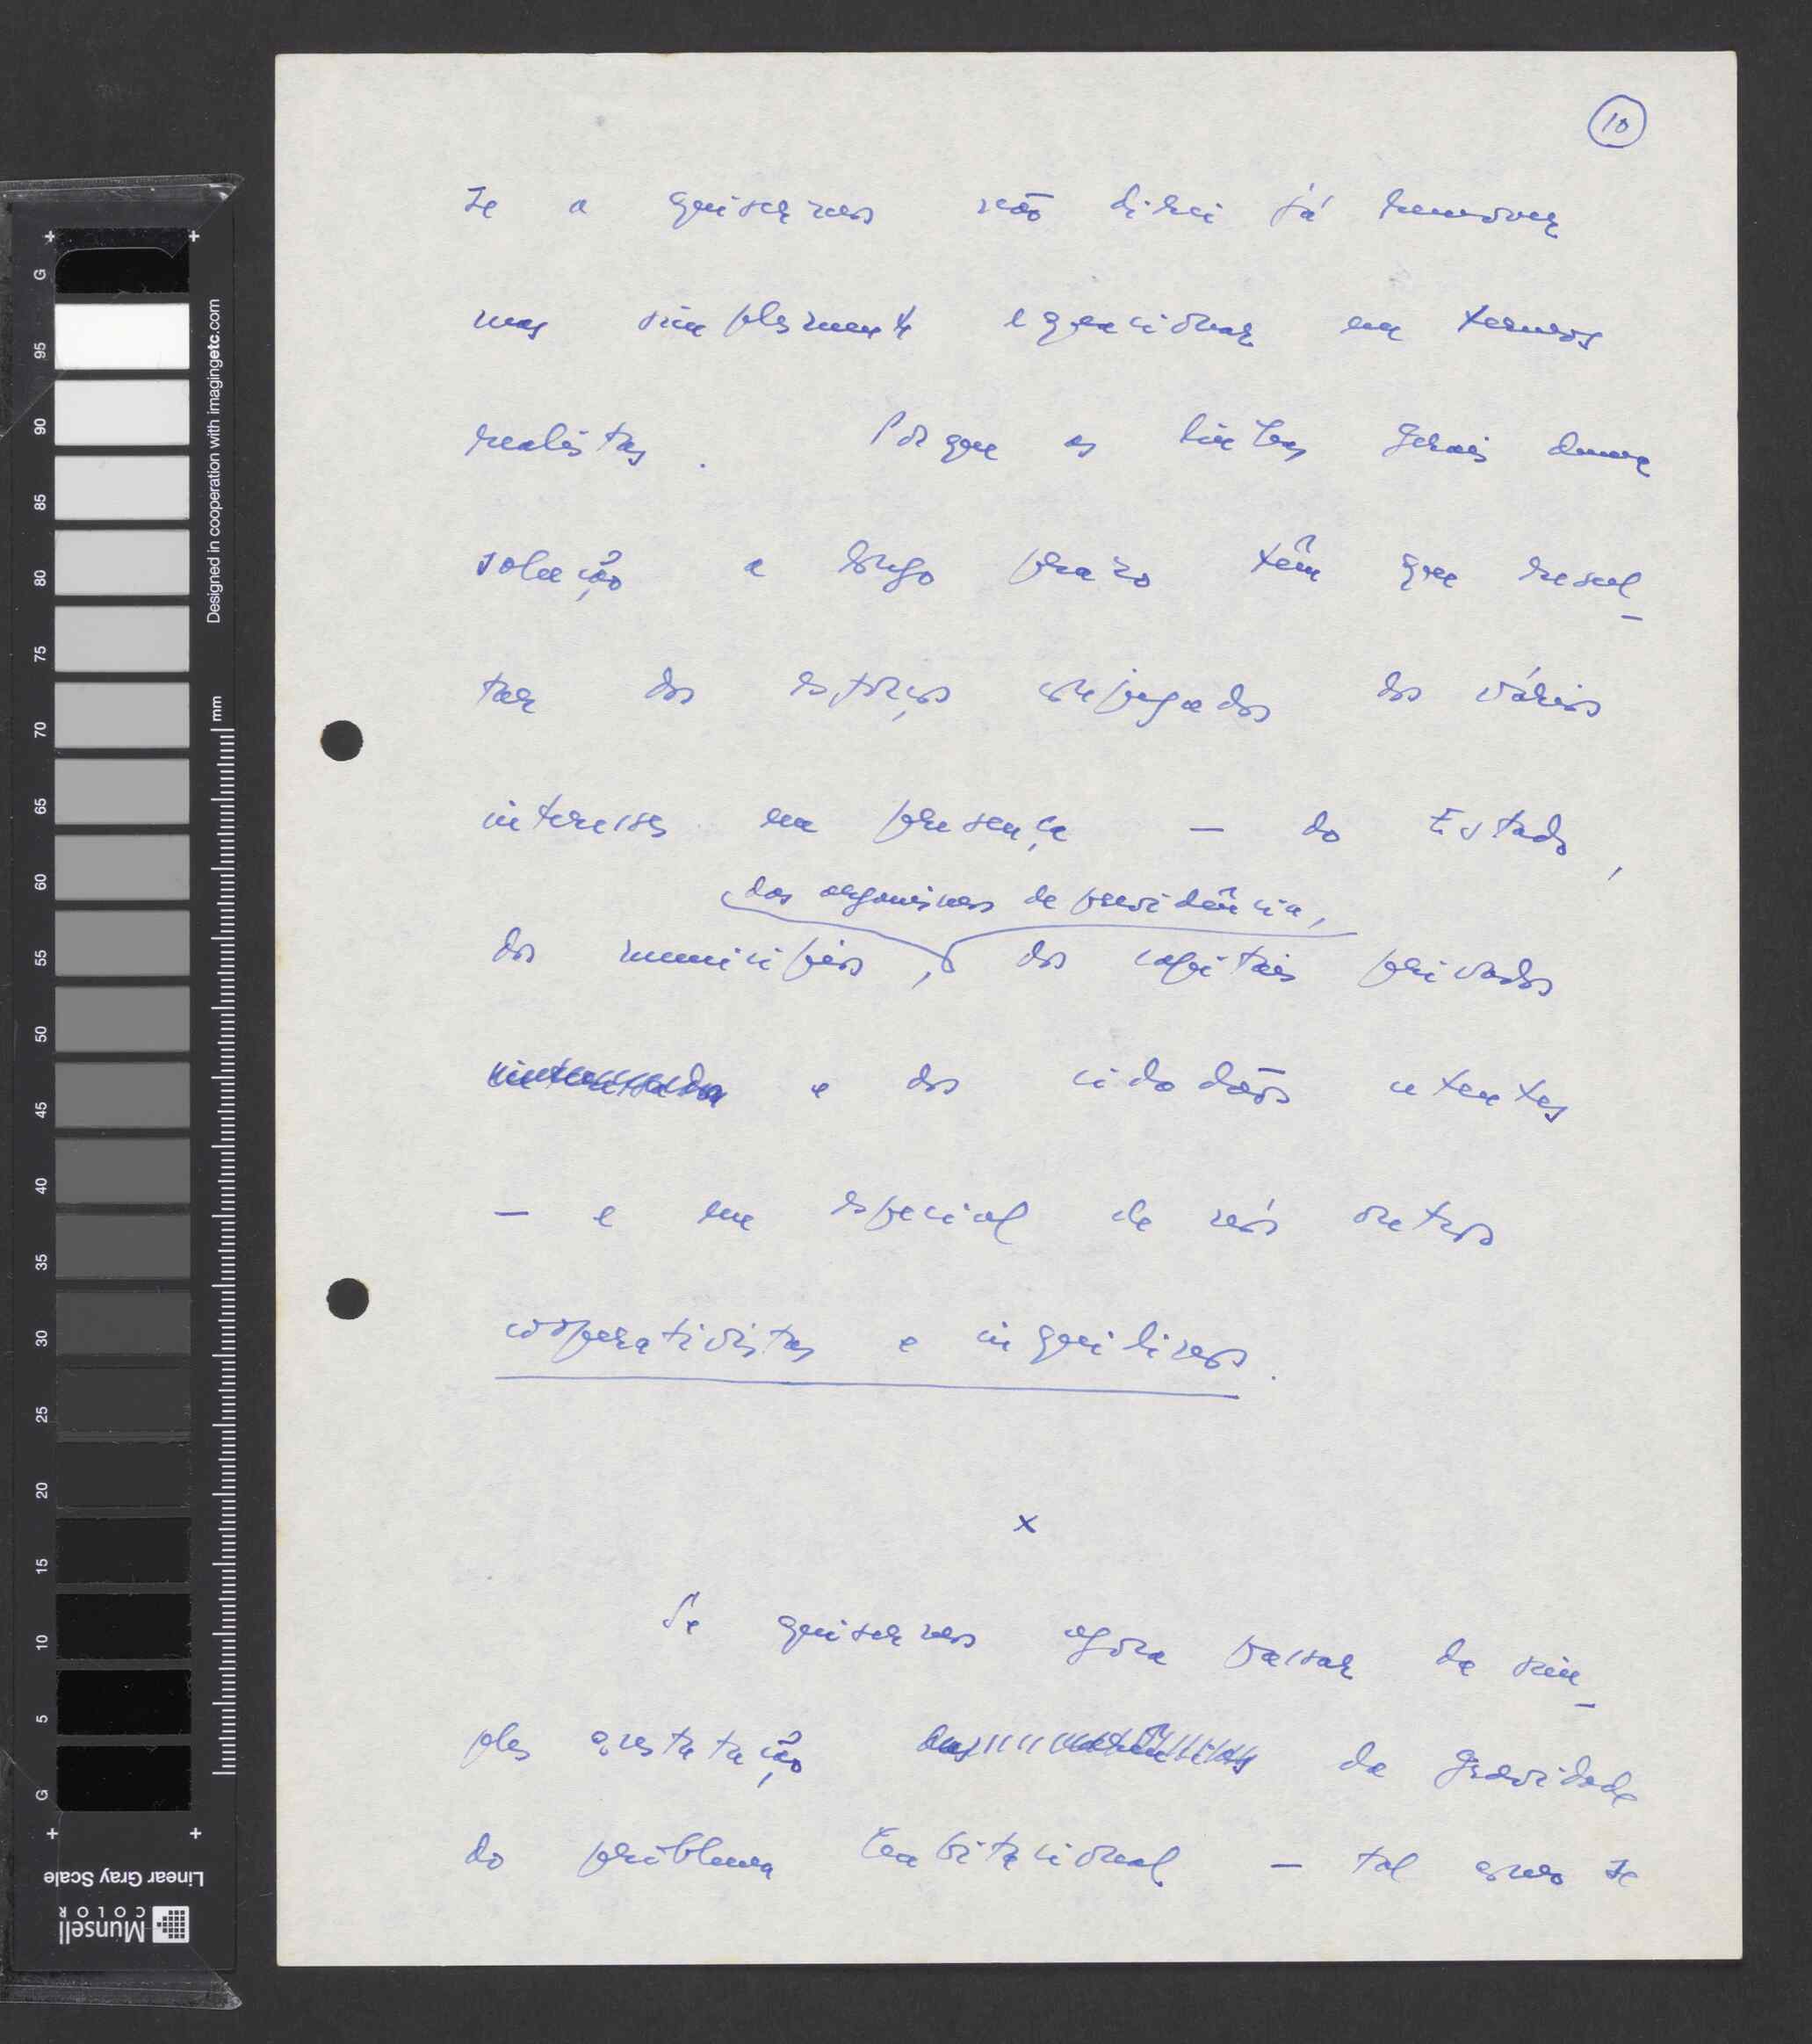 10
se a quisermos não direi já remover
mas simplesmente equacionar em termos
realistas. Porque as linhas gerais duma
solução a longo prazo têm que resul-
tar dos esforços conjugados dos vários
interesses em presença — do Estado,
das organismos de previdência,
dos municípios, dos capitais privados
interessados e dos cidadãos utentes
— e em especial de nós outros
cooperativistas e inquilinos.
x
Se quisermos agora passar da sim-
ples constatação da gravidade
do problema habitacional — tal como se
G
95
90
85
80
75
70
65
60
55
50
45
40
35
30
25
20
15
10
5
G
Designed in cooperation with imagingetc.com
mm
Linear Gray Scale
Munsell
COLOR